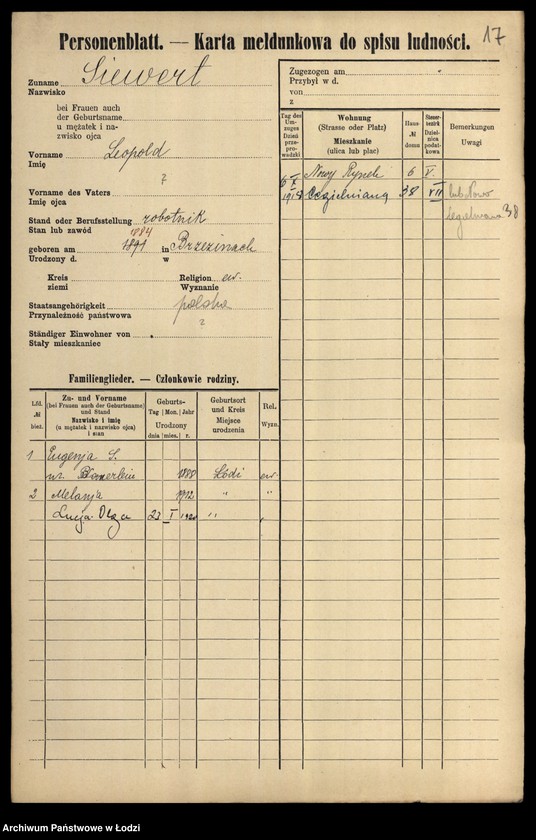 17
Personenblatt. — Karta meldunkowa do spisu ludności.
Zuname Siewert
Nazwisko
bei Frauen auch
der Geburtsname
u mężatek i na-
zwisko ojca
Vorname Leopold
Imię
?
Vorname des Vaters
Imię ojca
Stand oder Berufsstellung robotnik
Stan lub zawód
1884
geboren am 1891 in Brzezinach
Urodzony d. w
Kreis Religion ew.
ziemi Wyznanie
Staatsangehörigkeit polska
Przynależność państwowa ?
Ständiger Einwohner von
Stały mieszkaniec
Zugezogen am
Przybył w d.
von
z
Tag des Um-zuges Dzień prze-prowadzki
Wohnung (Strasse oder Platz) Mieszkanie (ulica lub plac)
Haus- № domu
Steuer-bezirk Dziel-nica podat-kowa
Bemerkungen Uwagi
Nowy Rynek 6 V.
6 X 1918 Cegielniana 38 VII lub Nowo
Cegielniana 38
Familienglieder. — Członkowie rodziny.
Lfd. № bież.
Zu- und Vorname (bei Frauen auch der Geburtsname) und Stand Nazwisko i imię (u mężatek i nazwisko ojca) i stan
Geburts- Tag Mon. Jahr Urodzony dnia mies. r.
Geburtsort und Kreis Miejsce urodzenia
Rel. Wyzn.
1 Eugenja S.
ur. 1888 Łódź ew.
2 Melanja 1912 " "
Lucja Olga 23 I 1920 "
Archiwum Państwowe w Łodzi